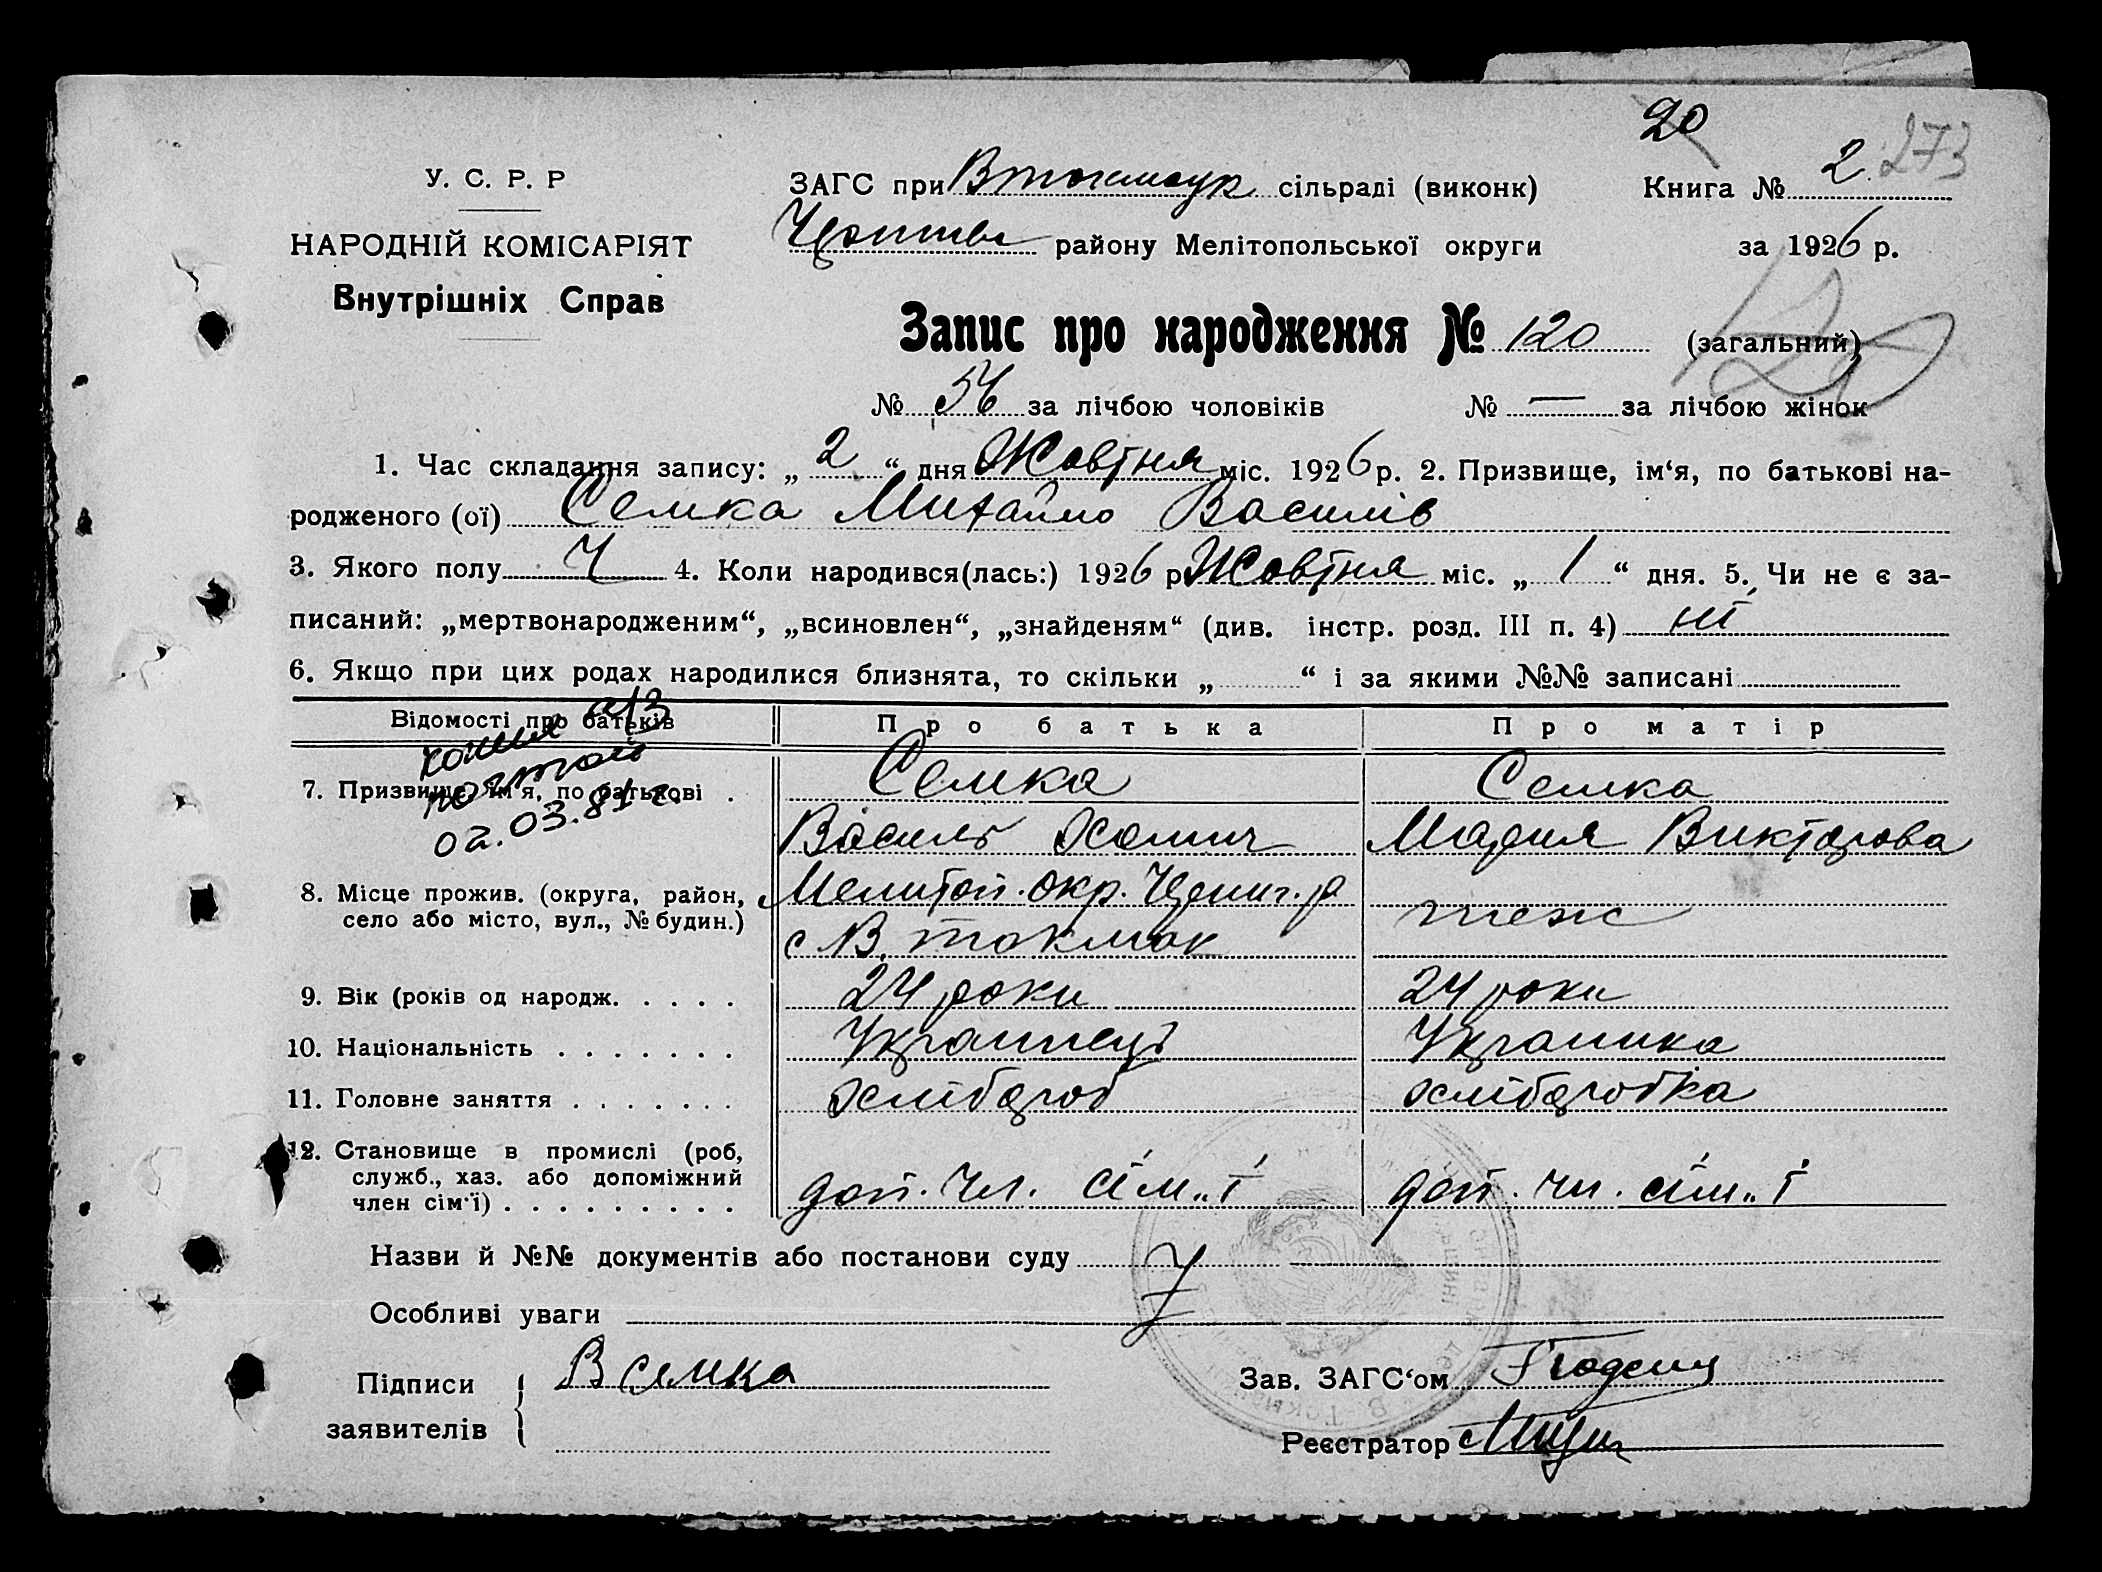 20
2 273
У. С. Р. Р
НАРОДНІЙ КОМІСАРІЯТ
Внутрішніх Справ
ЗАГС при Втокмак сільраді (виконк) Книга № 2
району Мелітопольської округи за 1926 р.
Запис про народження № 120 (загальний)
120
№ 56 за лічбою чоловіків № — за лічбою жінок
1. Час складання запису: „ 2 “ дня Жовтня міс. 1926 р. 2. Призвище, ім‘я, по батькові на-
родженого (ої) Семка Михайло Василів
3. Якого полу Ч 4. Коли народився(лась:) 1926 р Жовтня міс. „ 1 “ дня. 5. Чи не є за-
писаний: „мертвонародженим“, „всиновлен“, „знайденям“ (див. інстр. розд. III п. 4) ні
6. Якщо при цих родах народилися близнята, то скільки „ “ і за якими №№ записані
Відомості про батьків Про батька Про матір
копия
почтой
02.03.81 г.
7. Призвище, ім‘я, по батькові . Семка Семка
Василь Мария Викторова
8. Місце прожив. (округа, район, Мелитоп. окр.
село або місто, вул., № будин.) с В. токмак теж
9. Вік (років од народж. . . . . 24 роки 24 роки
10. Національність . . . . . . . Украинець Украинка
11. Головне заняття . . . . . . . хлібороб хліборобка
12. Становище в промислі (роб,
служб., хаз. або допоміжний
член сім‘ї) . . . . . . . . . доп. чл. сім„ї доп. чл. сім„ї
Назви й №№ документів або постанови суду
Особливі уваги
Підписи В Семка Зав. ЗАГС‘ом
заявителів Реєстратор